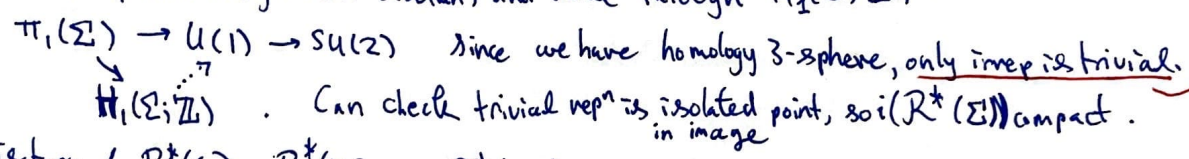 π₁(Σ) → U(1) → SU(2) since we have homology 3-sphere, only irrep is trivial.
H₁(Σ;ℤ). Can check trivial repⁿ is isolated point, so i(R*(Σ)) compact.
in image